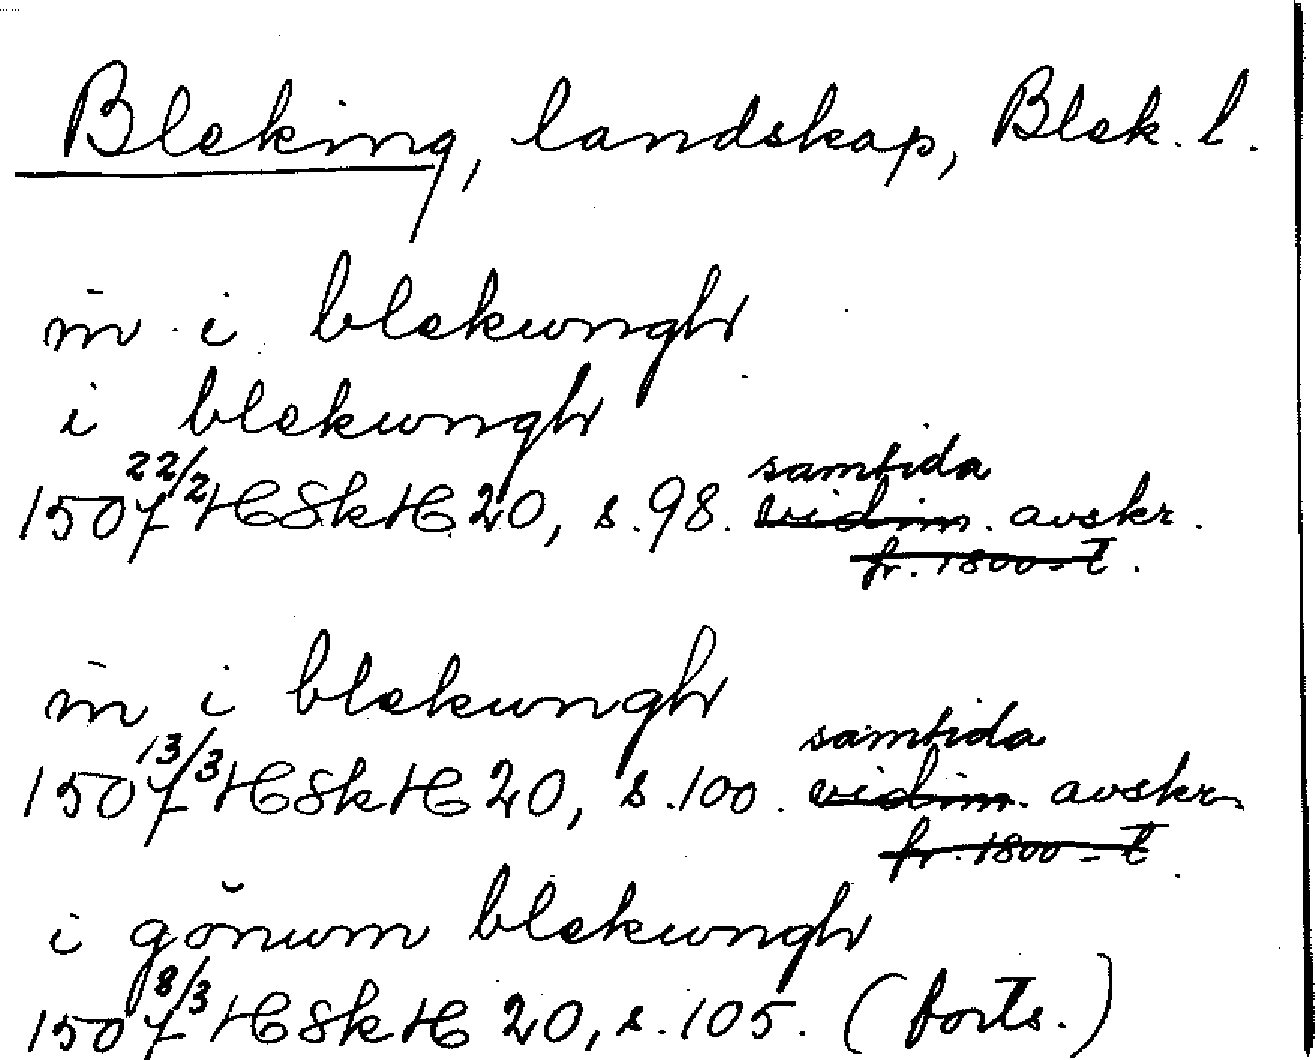 Bleking, landskap, Blek. l.
m̄ i blekungh
i blekungh
1507 22/2 HSkH 20, s. 98. samtida ~~vidim.~~ avskr.
~~fr. 1800-t.~~
m̄ i blekungh
1507 13/3 HSkH 20, s. 100. samtida ~~vidim.~~ avskr.
~~fr. 1800-t.~~
i gŏnum blekungh
1507 8/3 HSkH 20, s. 105. (forts.)